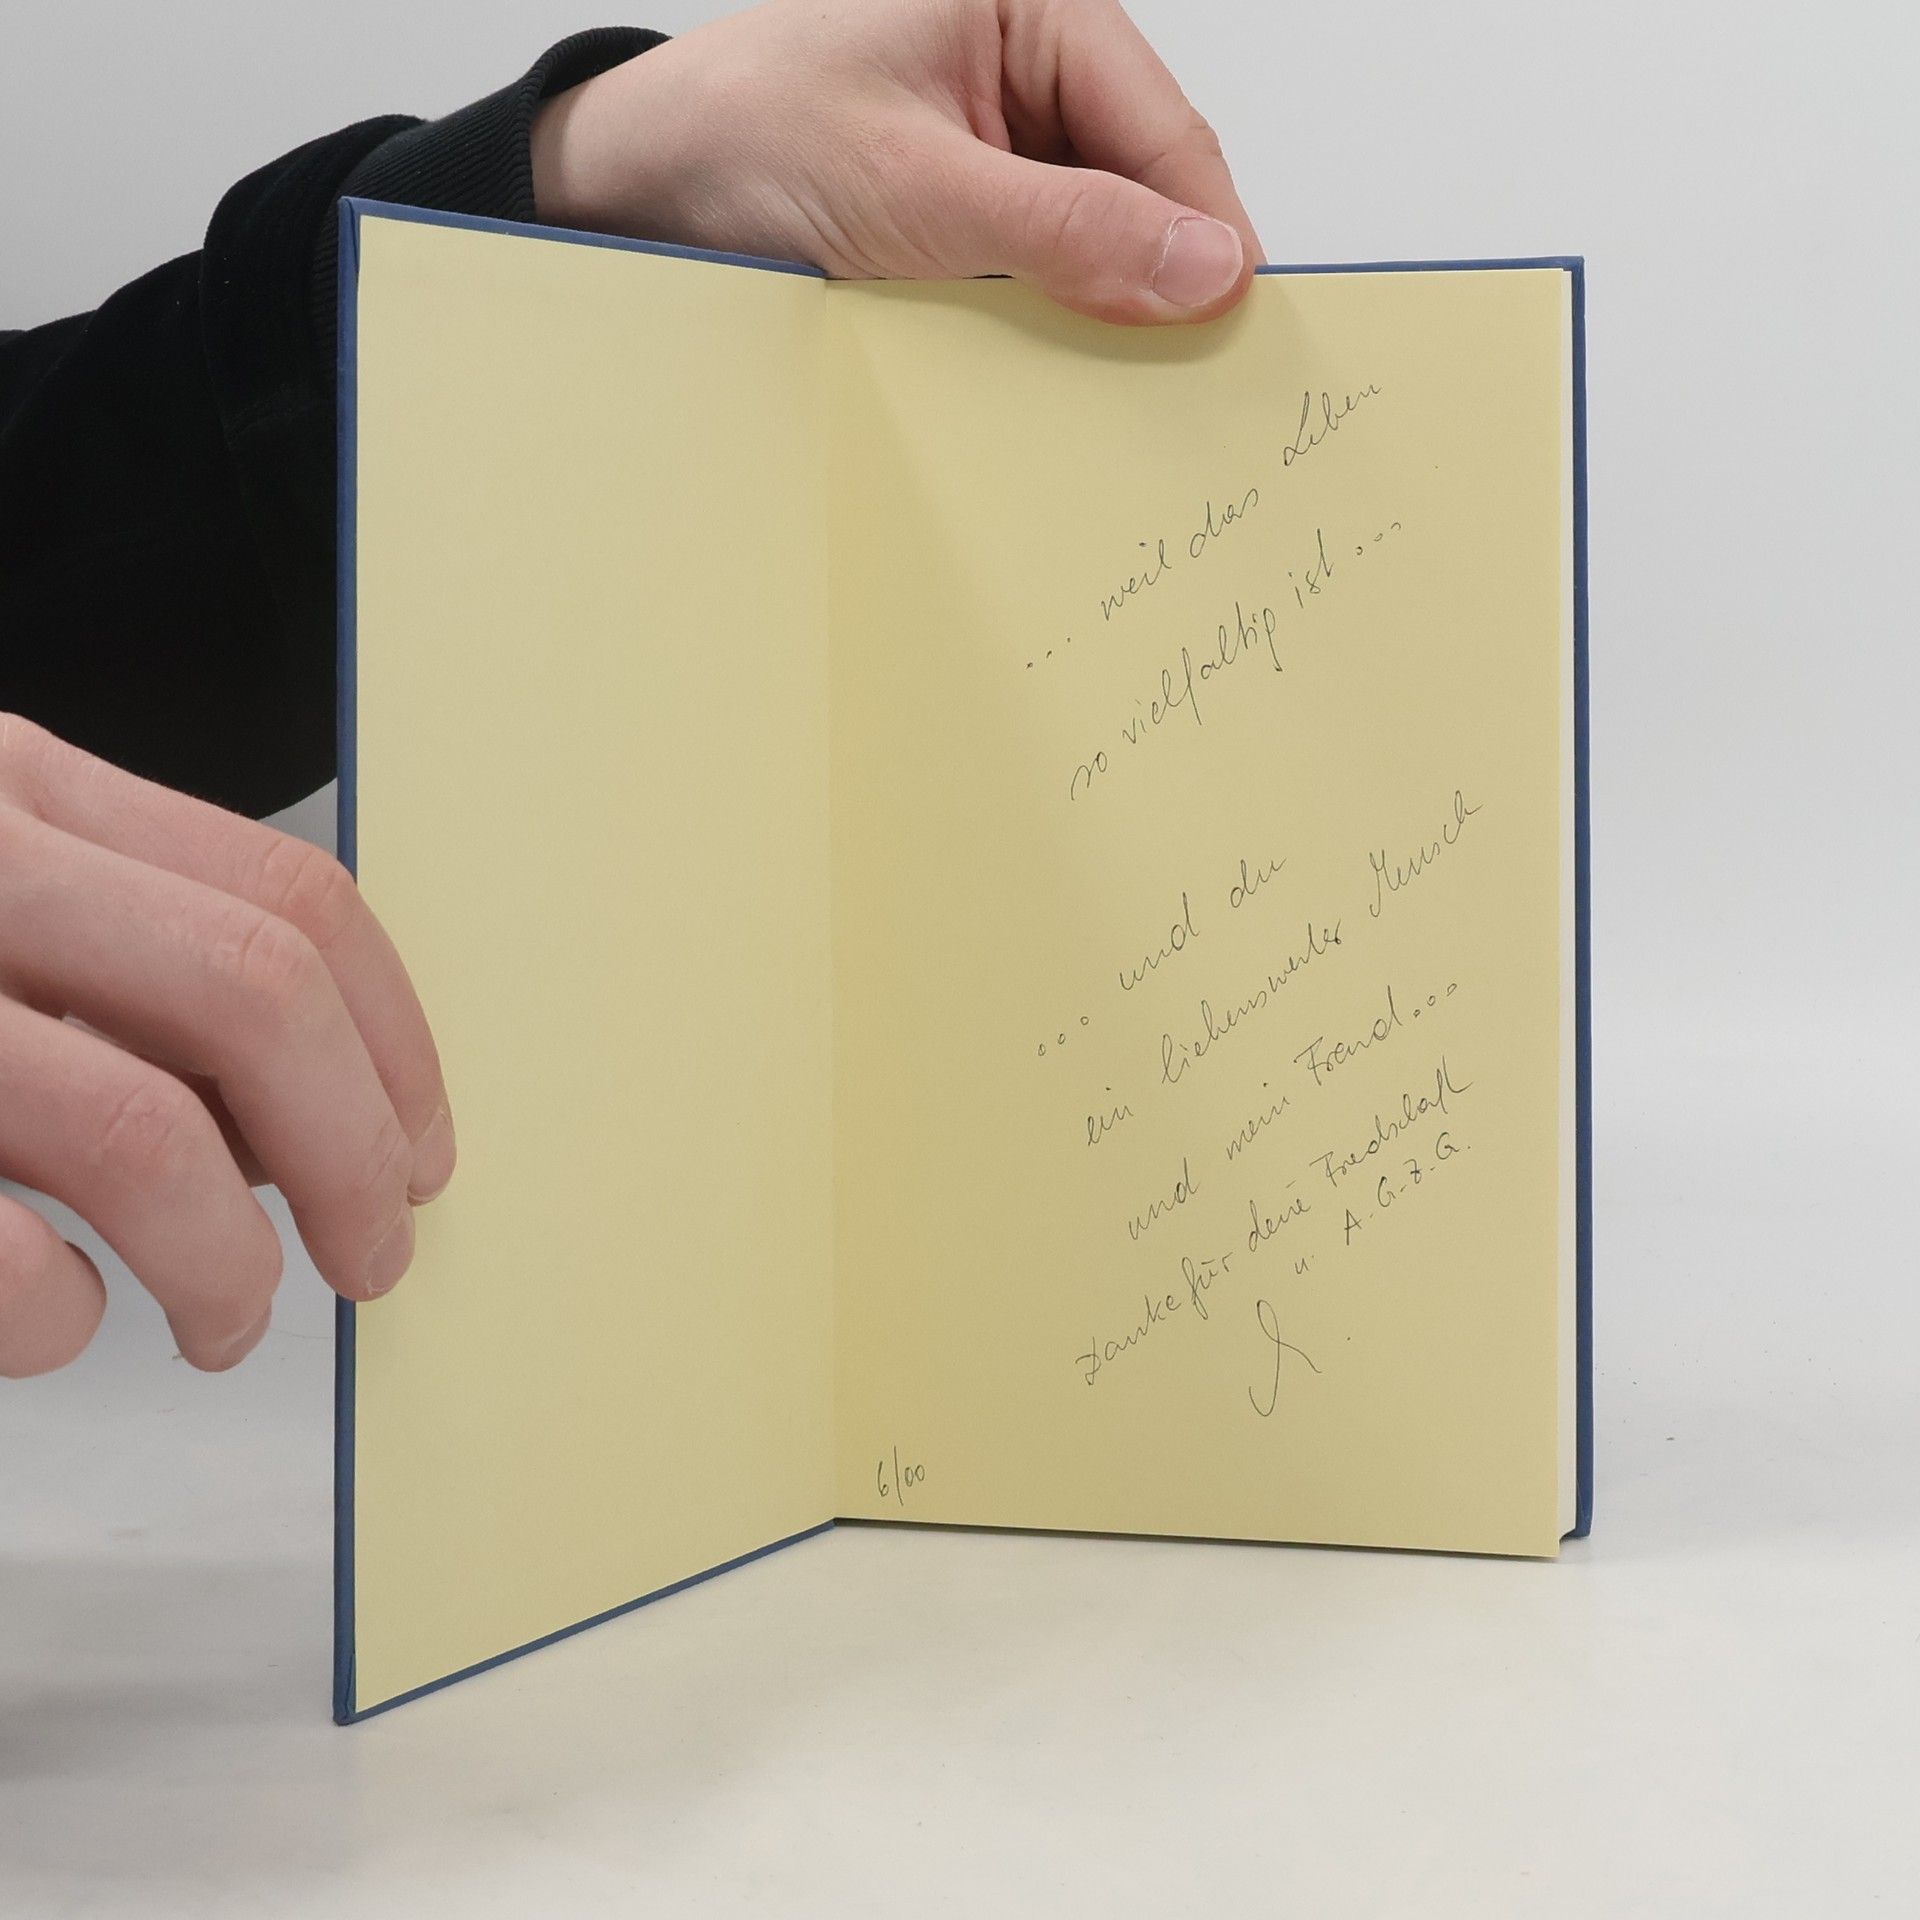 ... weil das Leben
so vielfaltig ist ...
... und du
ein liebenswerter Mensch
und mein Freund ...
Danke für deine Freudschaft
u. A. G. z. G.
6/00